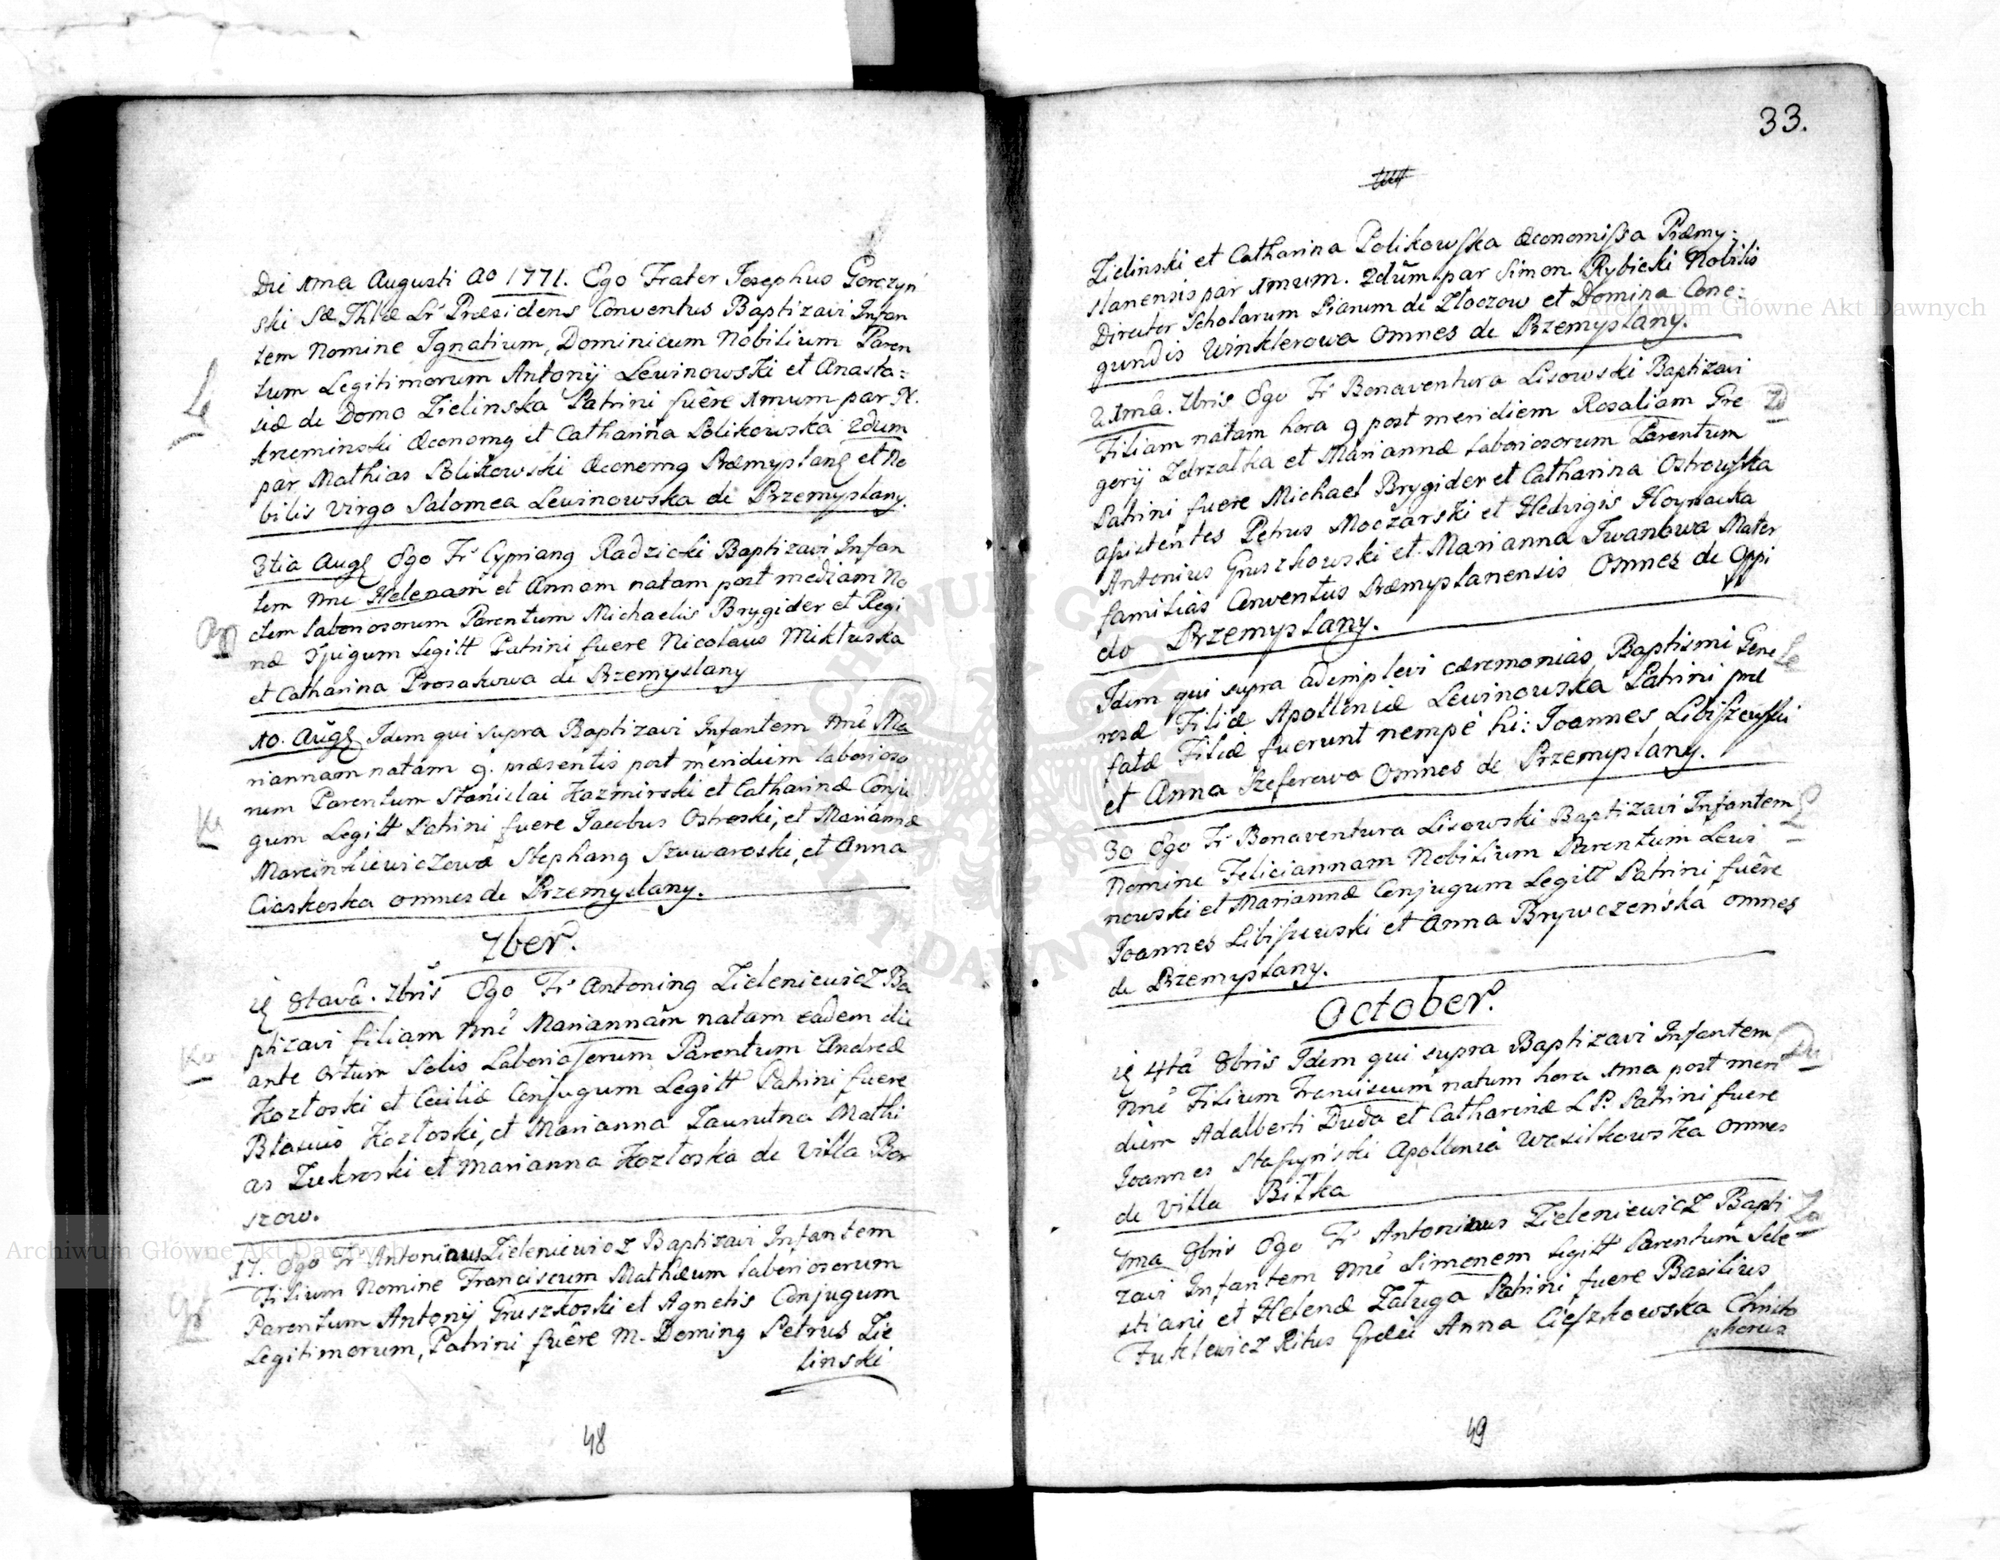 Die 1ma Augusti Ao 1771. Ego Frater Josephus Gorczyń
ski Sæ Thlæ Lr Præsidens Conventus Baptizavi Infan
tem Nomine Ignatium, Dominicum Nobilium Paren
Le
tum Legitimorum Antonij Lewinowski et Anasta=
siæ de Domo Zielinska Patrini fuêre 1mum par N.
Krzeminski Œconomg et Catharina Polikowska 2dum
par Mathias Polikowski Œconomg Præmyslang et No
bilis Virgo Salomea Lewinowska de Przemyslany.
3tia Augg Ego Fr Cypriang Radzicki Baptizavi Infan
tem Nne Helenam et Annam natam post mediam No
ctem laboriosorum Parentum Michaelis Brygider et Regi
næ Cjugum Legitt Patrini fuere Nicolaus Mikluska
et Catharina Prosakowa de Przemyslany
10. Augg Idem qui supra Baptizavi Infantem Nnê Ma
riannam natam 9. præsentis post meridiem laborioso
rum Parentum Stanislai Kazmirski et Catharinæ Conju
Ka
gum Legitt Patrini fuere Jacobus Ostroski, et Marianna
Marcinkiewiczowa Stephang Szuwaroski, et Anna
Ciaskoska omnes de Przemyslany.
7ber.
8tavâ. 7bris Ego Fr Antoning Zieleniewicz Ba
ptizavi filiam Nnê Mariannam natam eadem die
Ko
ante ortum Solis Laboriosorum Parentum Andreæ
Kozłoski et Ceciliæ Conjugum Legitt Patrini fuere
Blasius Kozłoski, et Marianna Taurutna Mathi
as Zukroski et Marianna Kozłoska de Villa Bor
szow.
17. Ego Fr Antonius Zieleniewicz Baptizavi Infantem
Filium Nomine Franciscum Mathæum laboriosorum
Gr
Parentum Antonij Gruszkoski et Agnetis Conjugum
Legitimorum, Patrini fuêre M. Doming Petrus Zie
linski
48
33.
Zielinski et Catharina Polikowska Œconomissa Præmy:
slanensis par 1mum. 2dum par Simon Rybicki Nobilis
Director Scholarum Piarum de Złoczow et Domina Cone:
gundis Winklerowa Omnes de Przemyslany.
21mâ. 7bris Ego Fr Bonaventura Lisowski Baptizavi
Filiam natam hora 9 post meridiem Rosaliam Gre
Zd
gorij Zdrzałka et Mariannæ laboriosorum Parentum
Patrini fuere Michael Brygider et Catharina Ostrowska
assistentes Petrus Moczarski et Hedvigis Hoynacka
Antonius Gruszkowski et Marianna Iwanowa Mater
familias Conventus Præmyslanensis Omnes de Oppi
do Przemyslany.
Idem qui supra adimplevi cæremonias Baptismi Gene
Le
rosæ Filiæ Apolloniæ Lewinowska Patrini præ
fatæ Filiæ fuerunt nempè hi: Joannes Libiszewski
et Anna Szeferowa Omnes de Przemyslany.
30 Ego Fr Bonaventura Lisowski Baptizavi Infantem
Nomine Feliciannam Nobilium Parentum Lewi
nowski et Mariannæ Conjugum Legitt Patrini fuêre
Joannes Libiszewski et Anna Brywczeńska omnes
de Przemyslany.
October.
4tâ 8bris Idem qui supra Baptizavi Infantem
Du
Nnê Filium Franciscum natum hora 1ma post meri
diem Adalberti Duda et Catharinæ L P. Patrini fuere
Joannes Staszyński Apollonia Wasilkowska omnes
de Villa Biłka
7ma 8bris Ego Fr Antonius Zieleniewicz Bapti
Za
zavi Infantem Nnê Simonem Legitt Parentum Seba
stiani et Helenæ Załuga Patrini fuere Basilius
Fusklewicz Ritus Græci Anna Cieszkowska Christo
phorus
49
Archiwum Główne Akt Dawnych
Archiwum Główne Akt Dawnych
Archiwum Główne Akt Dawnych
ARCHIWUM GŁÓWNE AKT DAWNYCH